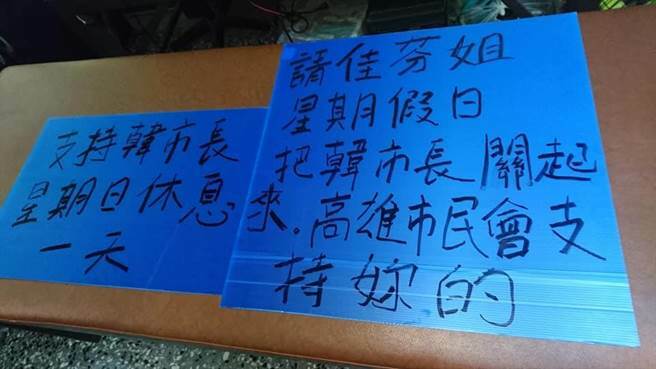 支持韓市長
星期日休息
一天
請佳芬姐
星期假日
把韓市長關起
來。高雄市民會支
持妳的